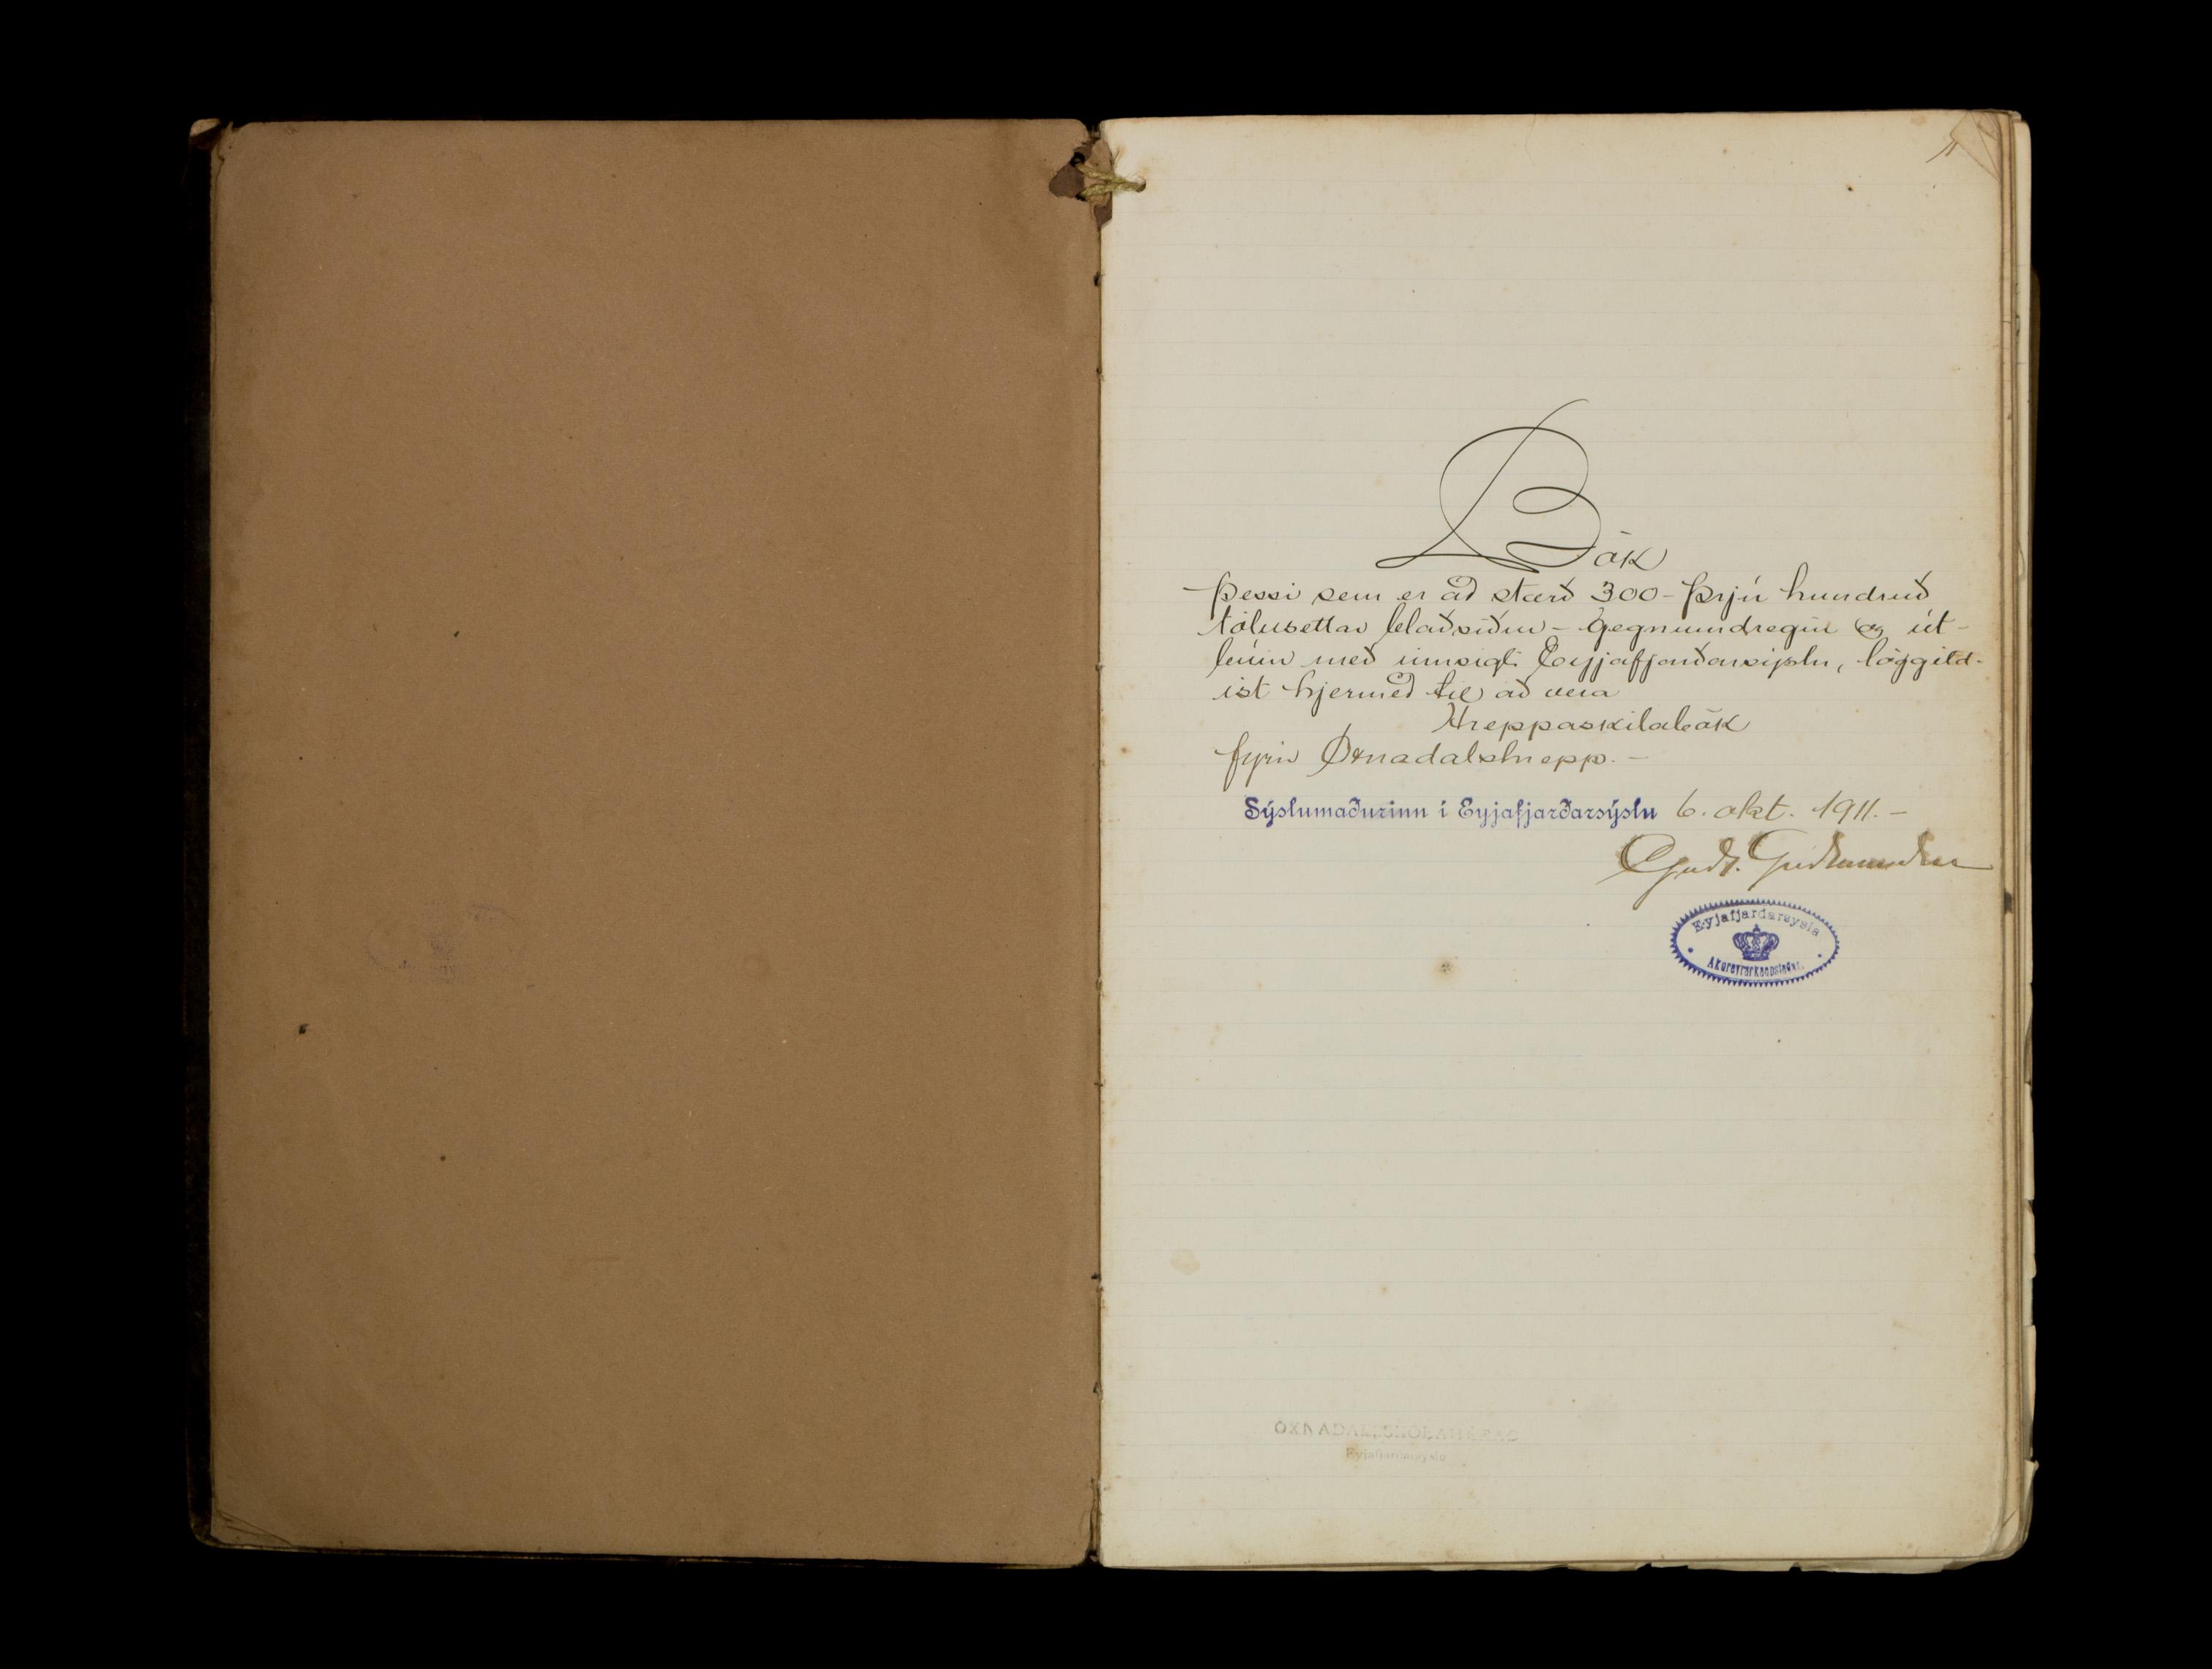 1
Bók
þessi sem er að stærð 300 - þrjú hundruð
tölusettar blaðsíður - gegnumdregin og út-
búin með innsigli Eyjafjarðarsýslu, löggild-
ist hjermeð til að vera
Hreppaskilabók
fyrir Öxnadalshrepp. -
Sýslumaðurinn í Eyjafjarðarsýslu 6. okt. 1911. -
Guðl. Guðmundsson
Eyjafjardarsysla
Akureyrarkaupstadur.
Eyjafjarðarsýslu